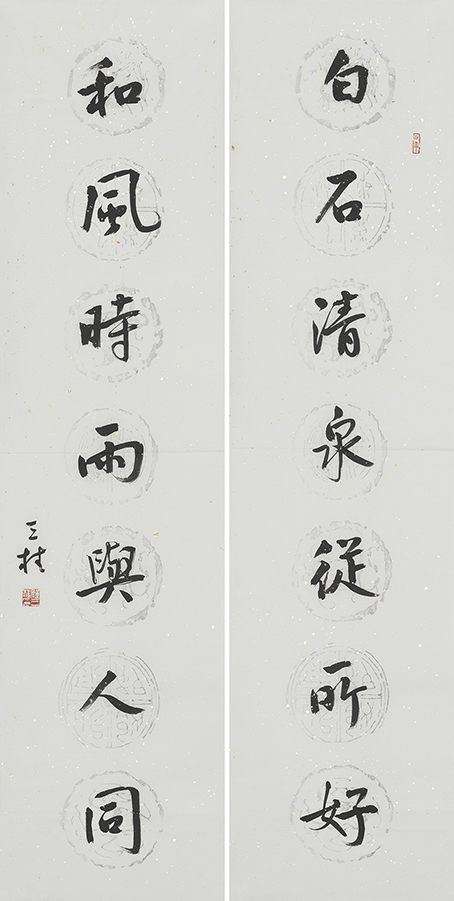 白石清泉從所好
和風時雨與人同
三桂